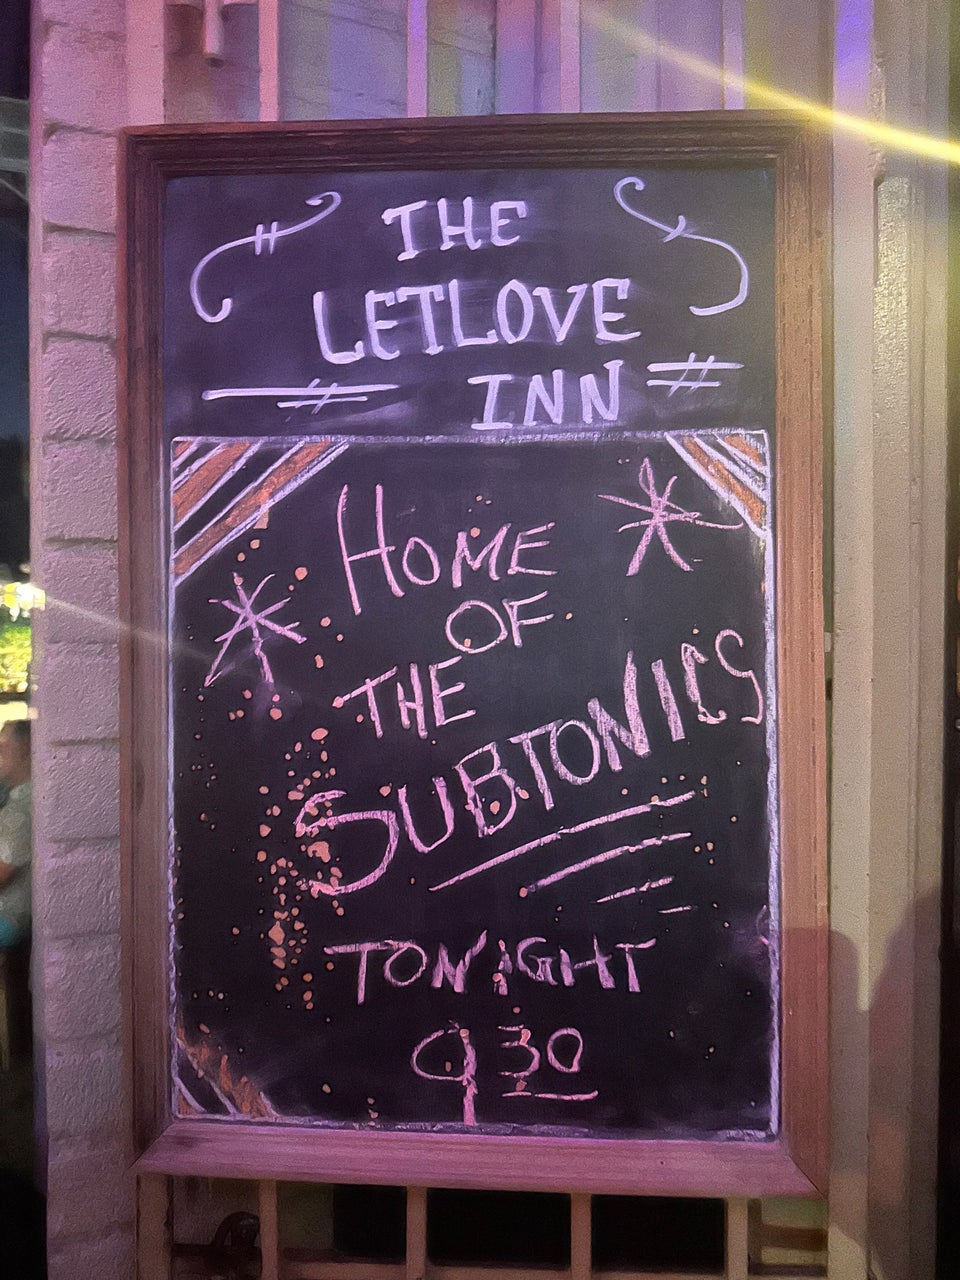 THE
LETLOVE
INN
HOME
OF
THE
SUBTONICS
TONIGHT
9 30